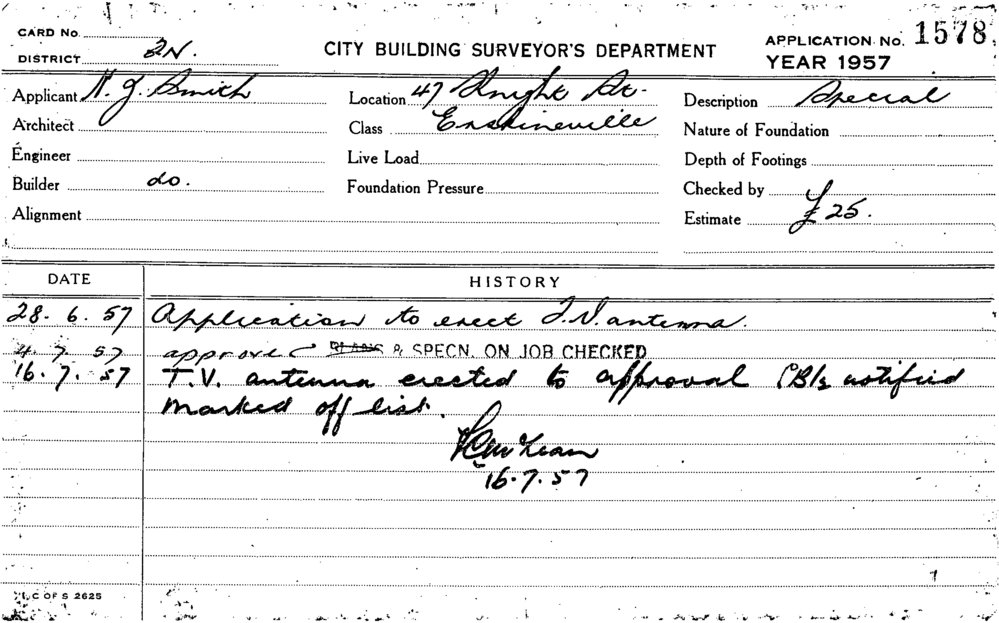 CARD No.
DISTRICT 2N.
CITY BUILDING SURVEYOR'S DEPARTMENT
APPLICATION No. 1578
YEAR 1957
Applicant N. J. Smith
Location 47 Knight St.
Description Special
Architect
Class Erskineville
Nature of Foundation
Engineer
Live Load
Depth of Footings
Builder do.
Foundation Pressure
Checked by
Alignment
Estimate £25.
DATE HISTORY
28. 6. 57 Application to erect T.V. antenna.
4. 7. 57 approved PLANS & SPECN. ON JOB CHECKED
16. 7. 57 T.V. antenna erected to approval notified
marked off list.
16. 7. 57
C OF S 2625